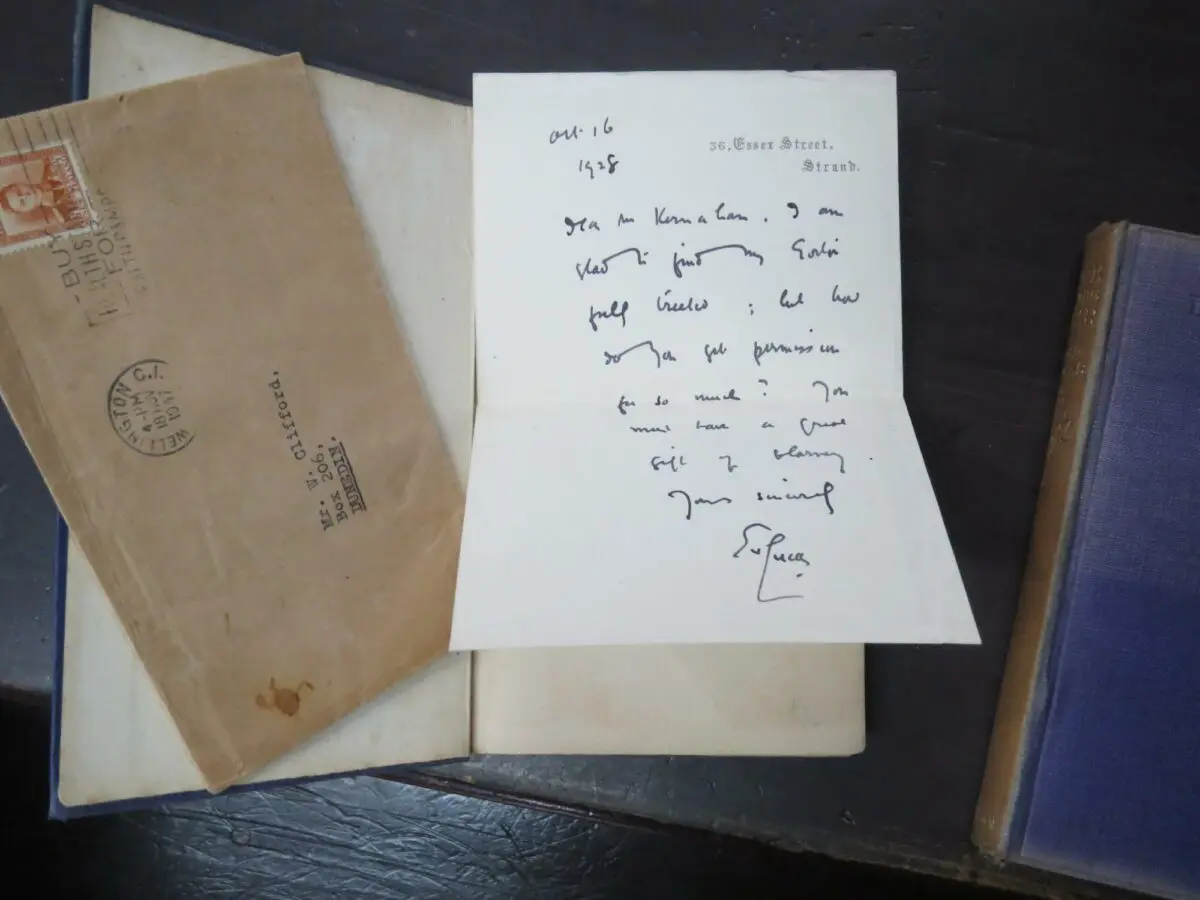 Oct. 16
1928
36, Essex Street,
Strand.
Dear Mr Kernahan. I am
glad to find my
fully treated ; but how
do you get permission
for so much? You
must have a great
gift of blarney.
Yours sincerely
EV Lucas
- BUY -
FOR
WELLINGTON C.1.
4 - PM
18 NOV
1947
Mr. W. Clifford,
Box 206,
DUNEDIN.